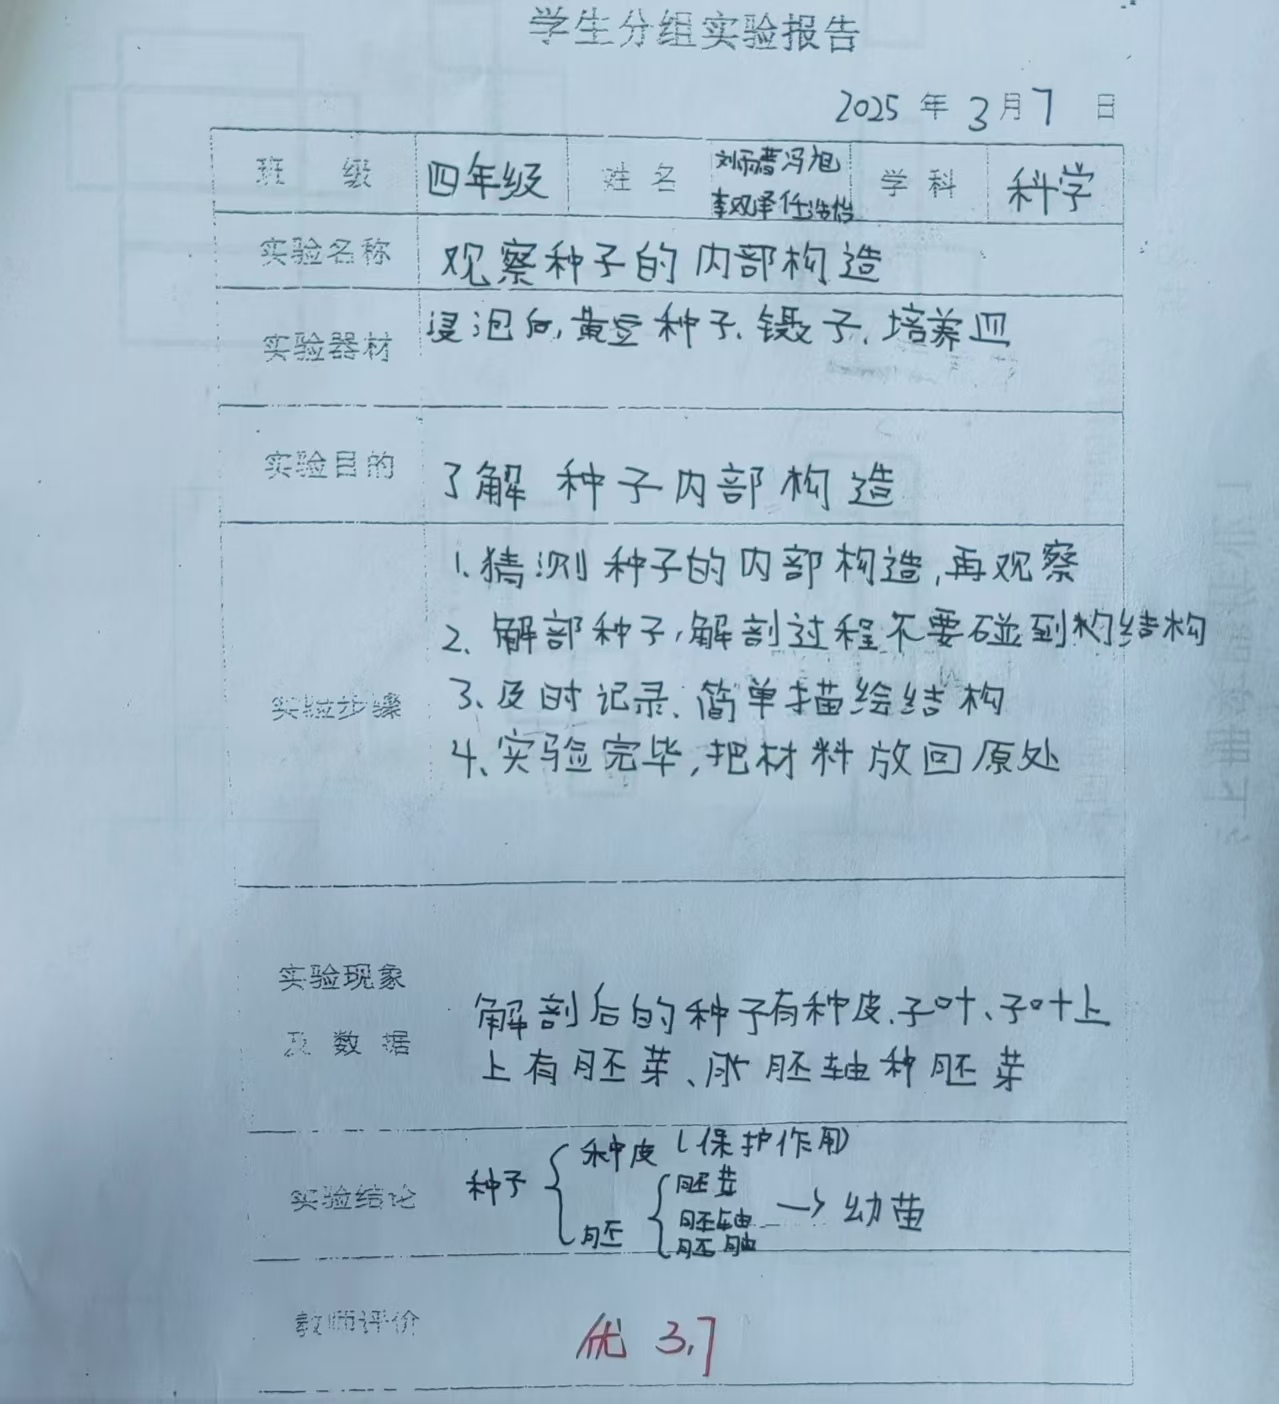 学生分组实验报告
2025 年 3 月 7 日
班 级 四年级 姓 名 冯旭 学 科 科学
实验名称 观察种子的内部构造
实验器材 浸泡后,黄豆种子、镊子、培养皿
实验目的 了解种子内部构造
1.猜测种子的内部构造,再观察
2、解部种子,解剖过程不要碰到构结构
实验步骤
3、及时记录、简单描绘结构
4、实验完毕,把材料放回原处
实验现象
及 数 据
解剖后的种子有种皮、子叶、子叶上
上有胚芽、胚轴种胚芽
实验结论
种子
种皮(保护作用)
胚
胚芽
胚轴
→幼苗
教师评价 优 3.7